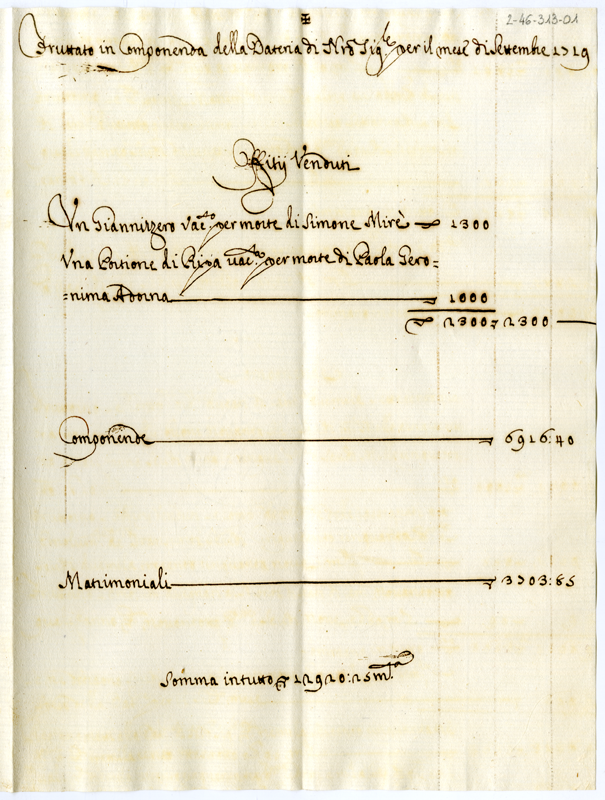 ✠
2-46-313-01
Fruttato in Componenda della Dateria di Nrô Sig.re per il mese di Settembre 1719
Offitij Venduti
Un Giannizzero vac.to per morte di Simone Mirè 1300
Una Portione di Ripa vac.ta per morte di Paola Gero=
=nima Adorna 1000
2300 2300
Componende 6916:40
Matrimoniali 3703:85
Somma in tutto 12920:25 m.ta